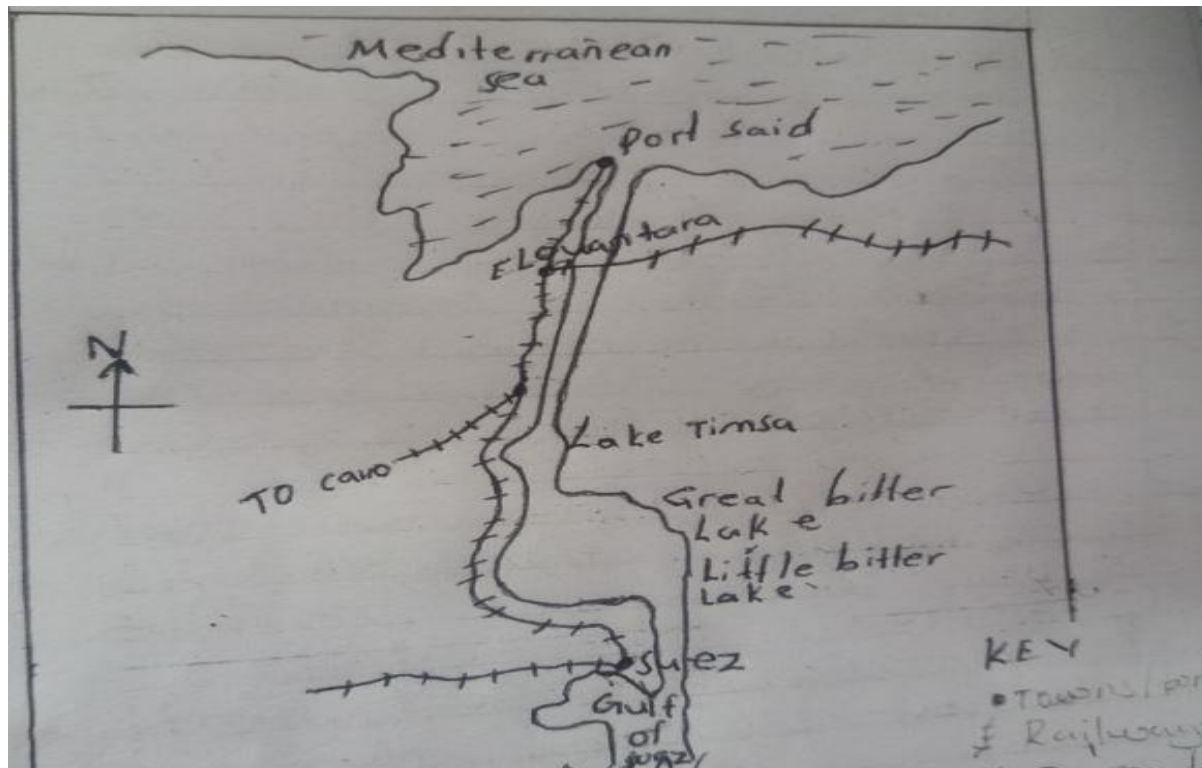 Mediterrañean
sea
port said
ELquantara
N
Lake Timsa
TO cairo
Great bitter
Lake
Little bitter
Lake
Suez
Gulf
of
suez
KEY
Town/por
Railway